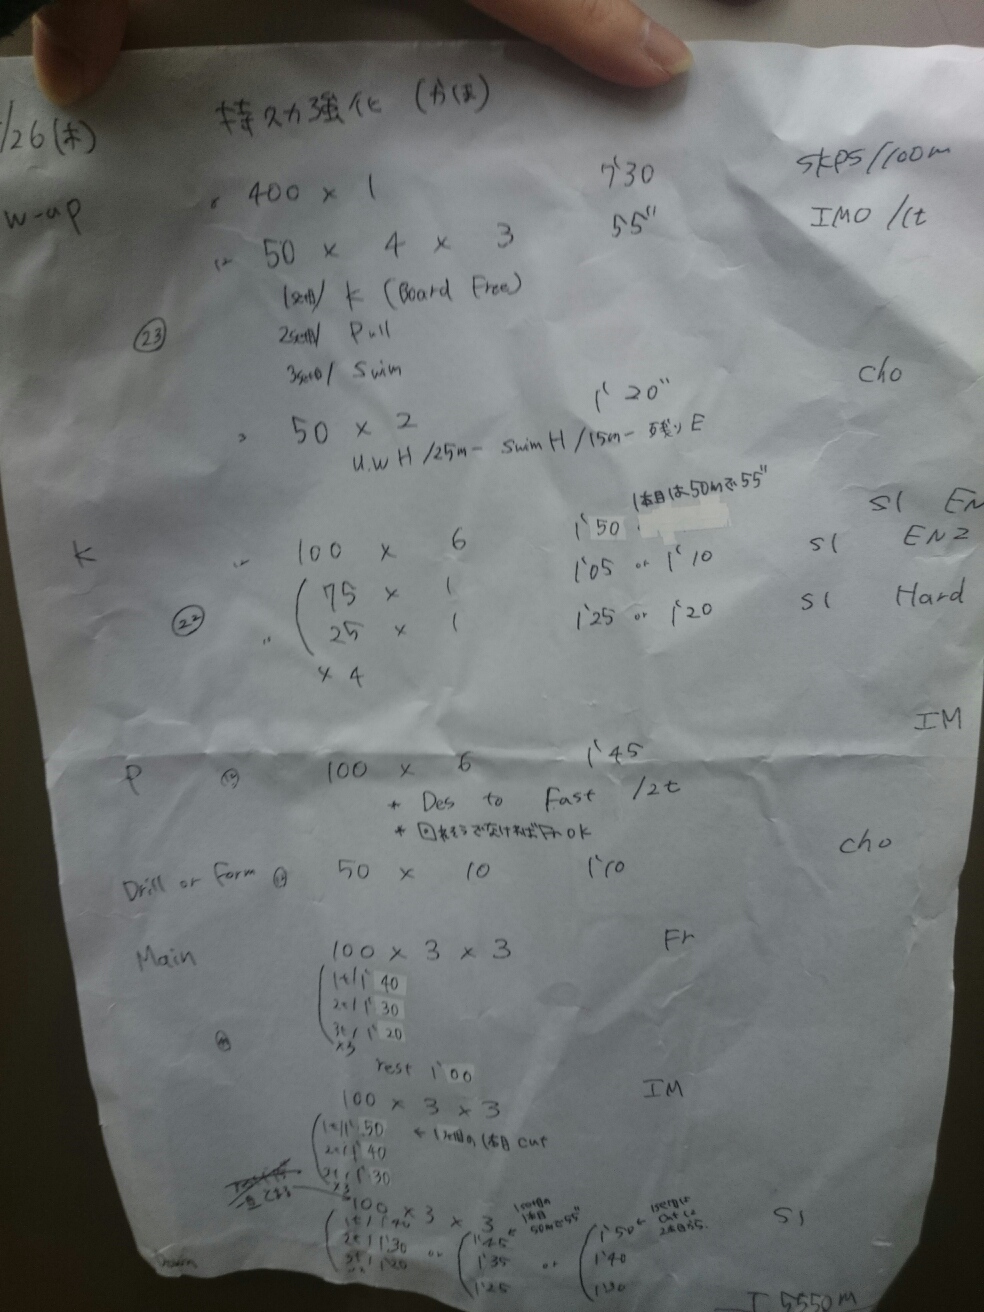 /26(木) 持久力強化 (分は)
w-up 400 × 1 7'30 SKPS/100m
50 × 4 × 3 55" IMO/1t
1set/ K (Board Free)
㉓ 2set/ Pull
3set/ Swim
50 × 2 1'20" cho
U.W H/25m- swim H/15m- 残り E
1本目は50mで55"
K 100 × 6 1'50 S1 EN
75 × 1 1'05 or 1'10 S1 EN2
㉒ 25 × 1 1'25 or 1'20 S1 Hard
× 4
P 100 × 6 1'45 IM
* Des to Fast /2t
* 回れそうでなければFr OK
Drill or Form 50 × 10 1'10 cho
Main 100 × 3 × 3 Fr
1t/1'40
2t/1'30
3t/1'20
×3
rest 1'00
100 × 3 × 3 IM
1t/1'50 ← 1本目 cut
2t/1'40
3t/1'30
×3
100 × 3 × 3 S1
1t/1'40 1'45 ← 1本目 50mで55" 1'50 ←
2t/1'30 or 1'35 or 1'40
3t/1'20 1'25 1'30
5550m